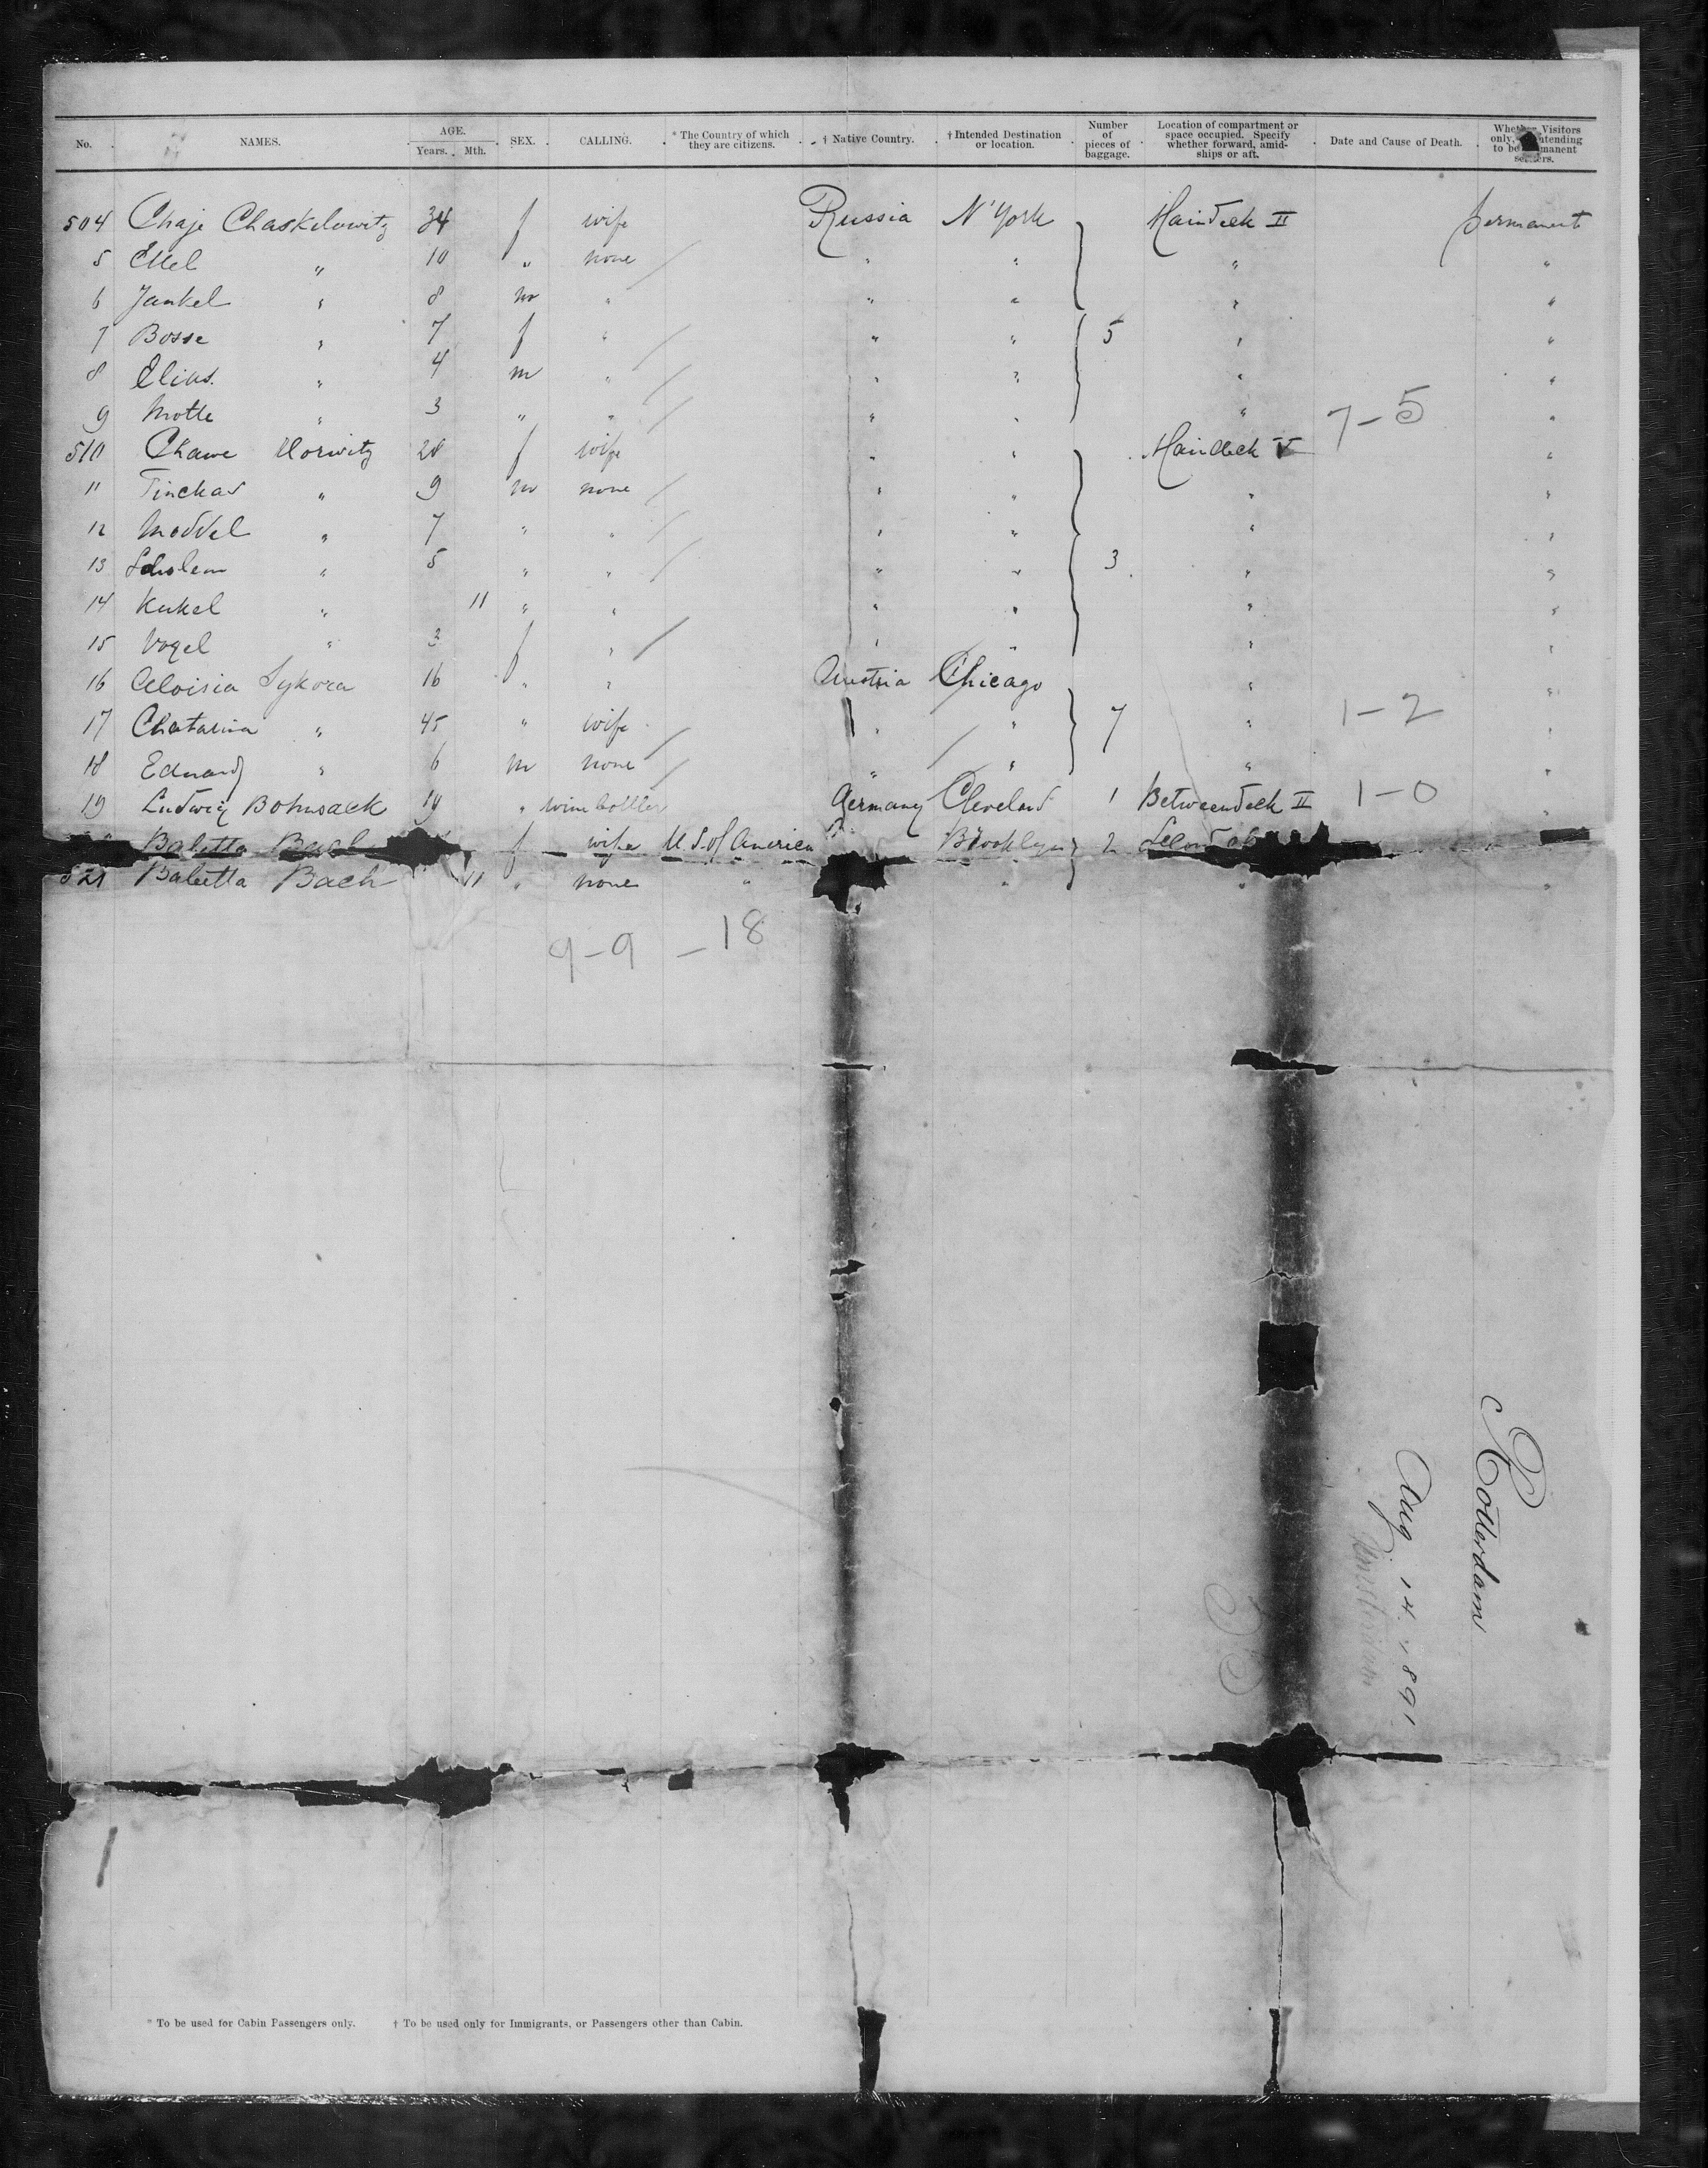 No. NAMES. AGE. Years. Mth. SEX. CALLING. * The Country of which they are citizens. † Native Country. † Intended Destination or location. Number of pieces of baggage. Location of compartment or space occupied. Specify whether forward, amidships or aft. Date and Cause of Death. Whether Visitors only, intending to be permanent settlers.
504 Chaje Chaskelowitz 34 f wife Russia N'York Maindeck II permanent
5 Ettel " 10 " none " " " "
6 Jankel " 8 m " " " " "
7 Bosse " 7 f " " " 5 " "
8 Elias. " 4 m " " " " "
9 Motte " 3 " " " " " 7-5 "
510 Chawe Horwitz 28 f wife " " Maindeck V "
11 Pinchas " 9 m none " " " "
12 Moddel " 7 " " " " " "
13 Scholem " 5 " " " " 3 " "
14 " 11 " " " " " "
15 Vogel " 3 f " " " " "
16 Aloisia Sykora 16 " " Austria Chicago " "
17 Chatarina " 45 " wife " " 7 " 1-2 "
18 Eduard " 6 m none " " " "
19 Ludwig Bohnsack 19 " Germany Cleveland 1 Betweendeck II 1-0 "
Babetta Bach f wife U.S. of America Brooklyn 2
521 Babetta Bach 11 " none " " " "
9-9 -18
Rotterdam
Aug 14 1891
* To be used for Cabin Passengers only. † To be used only for Immigrants, or Passengers other than Cabin.